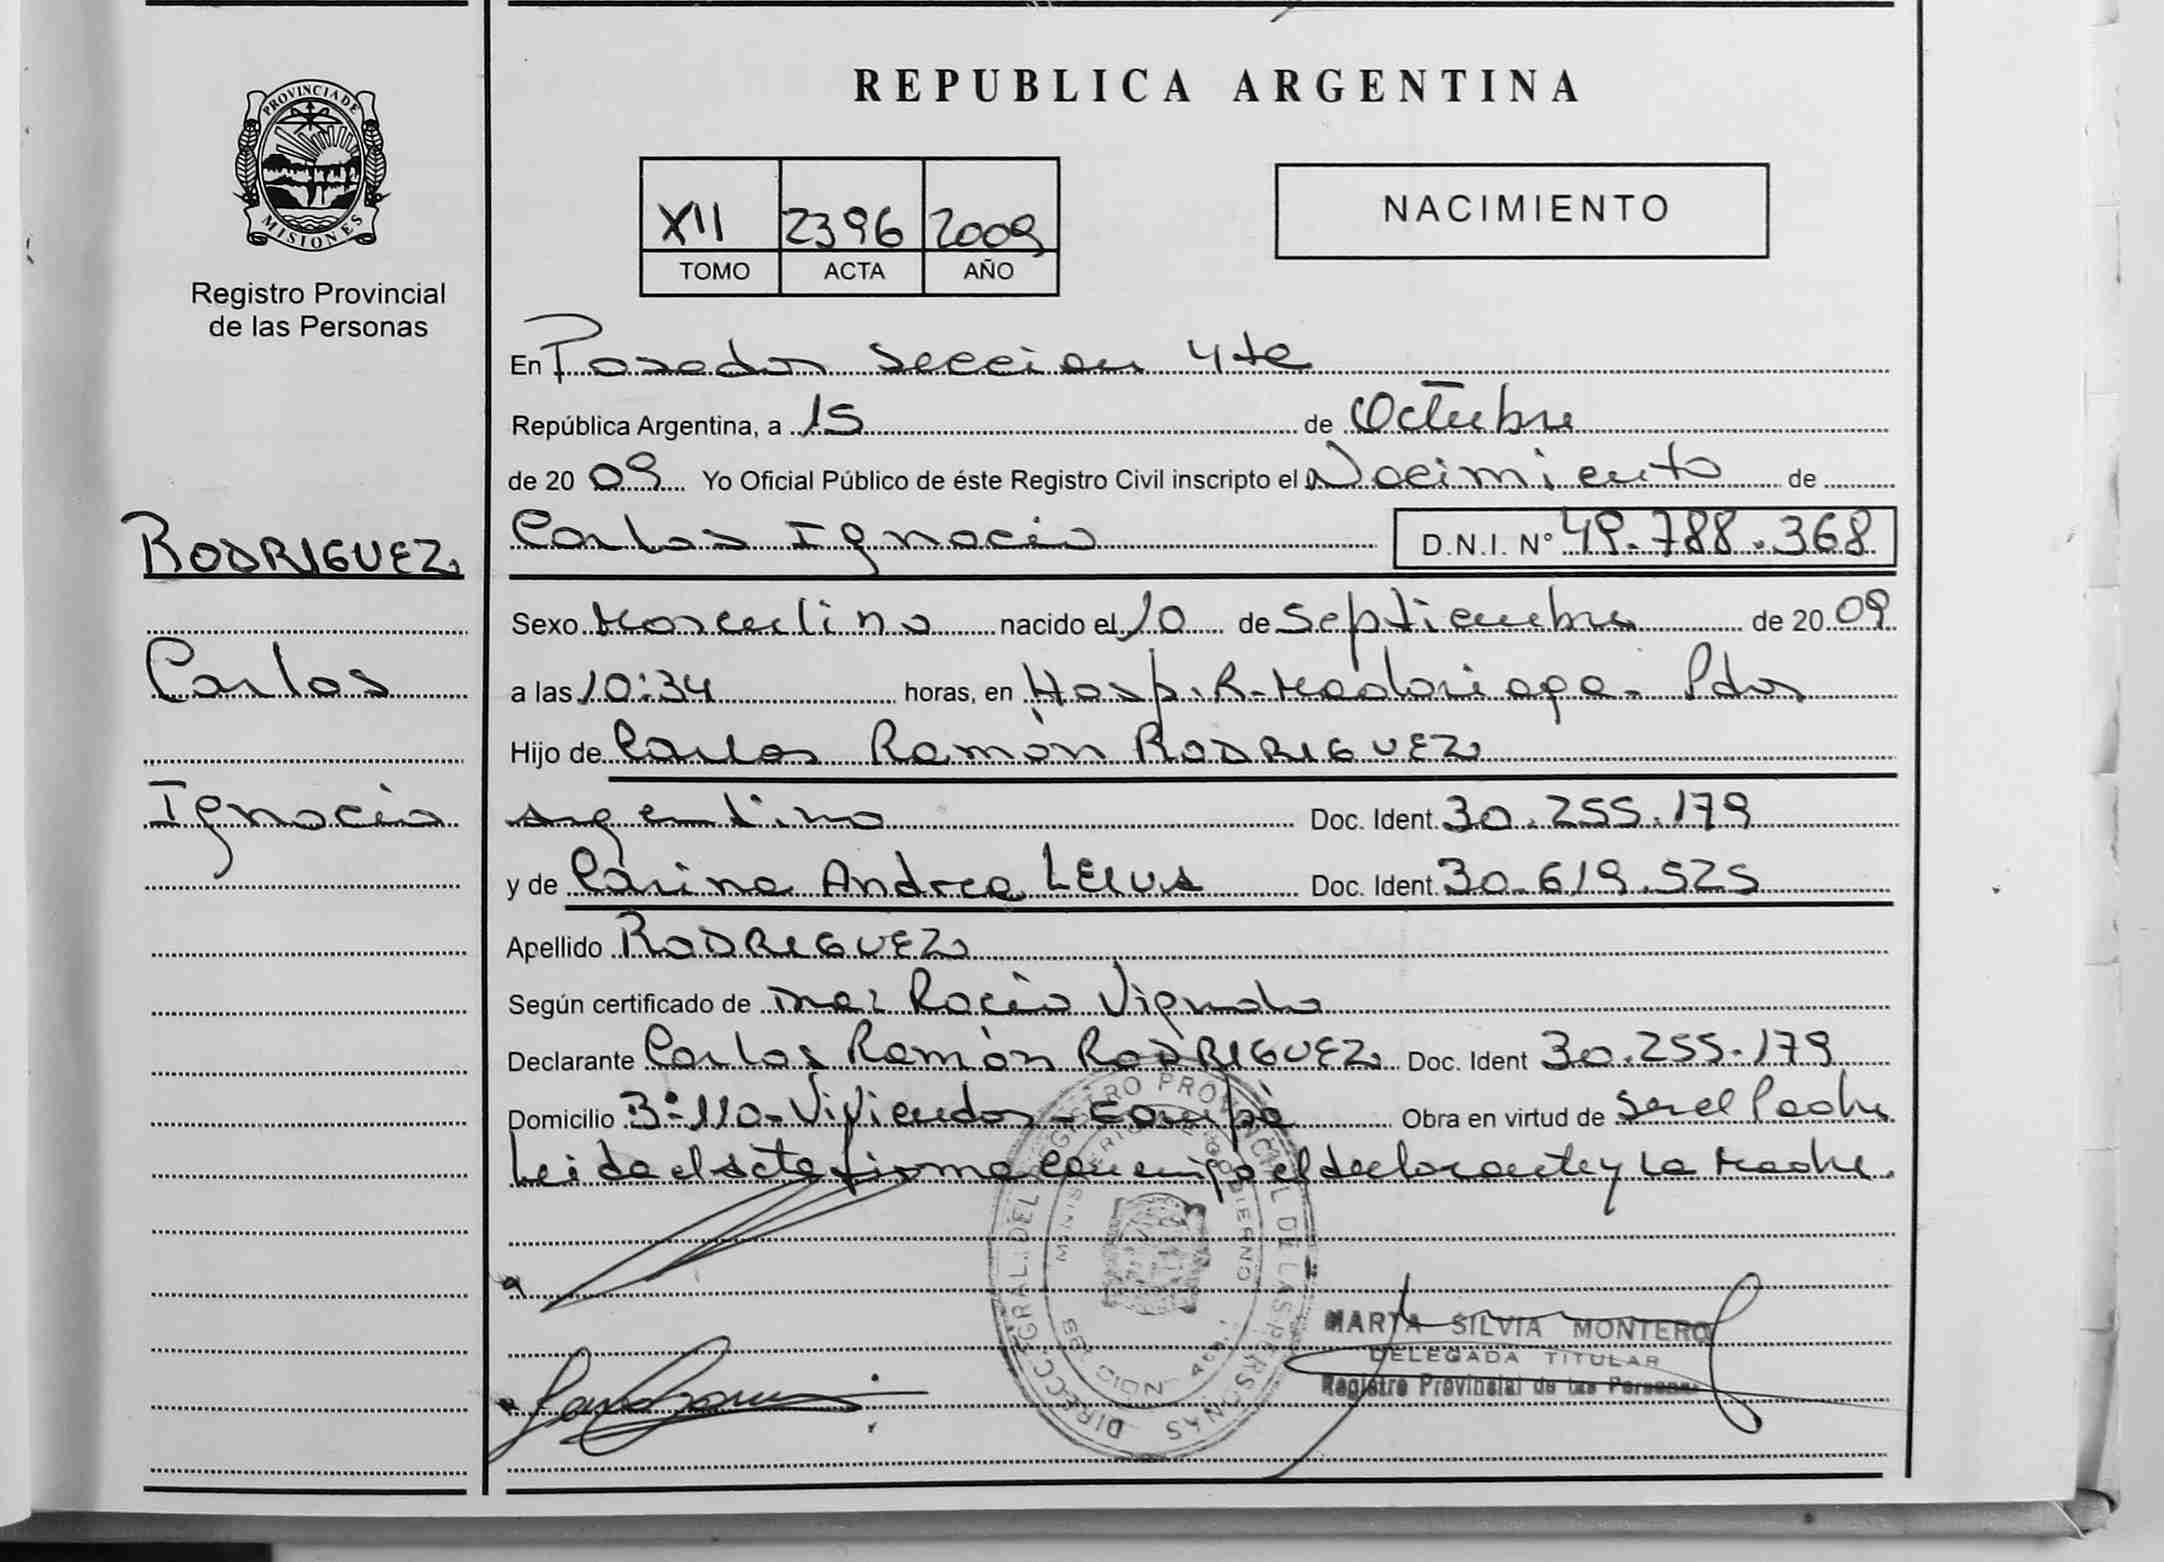 PROVINCIA DE
MISIONES
Registro Provincial
de las Personas
REPUBLICA ARGENTINA
XII 2396 2009
TOMO ACTA AÑO
NACIMIENTO
En Posadas Seccion 4ta
República Argentina, a 15 de Octubre
de 20 09 Yo Oficial Público de éste Registro Civil inscripto el Nacimiento de
RODRIGUEZ
Carlos Ignacio D.N.I. N° 49.788.368
Sexo Masculino nacido el 10 de Septiembre de 20 09
Carlos
a las 10:34 horas, en Hosp. R. Madariaga - Pdas
Hijo de Carlos Ramón RODRIGUEZ
Ignacio
argentino Doc. Ident. 30.255.179
y de Carina Andrea Doc. Ident. 30.619.525
Apellido RODRIGUEZ
Según certificado de Rocío
Declarante Carlos Ramón RODRIGUEZ Doc. Ident 30.255.179
Domicilio B° 110 - Viviendas - Obra en virtud de ser el Padre
Leida el acta firma conmigo el declarante y la Madre
DIRECC. GRAL. DEL REGISTRO PROVINCIAL DE LAS PERSONAS
MINISTERIO DE GOBIERNO
MARTA SILVIA MONTERO
DELEGADA TITULAR
Registro Provincial de las Personas